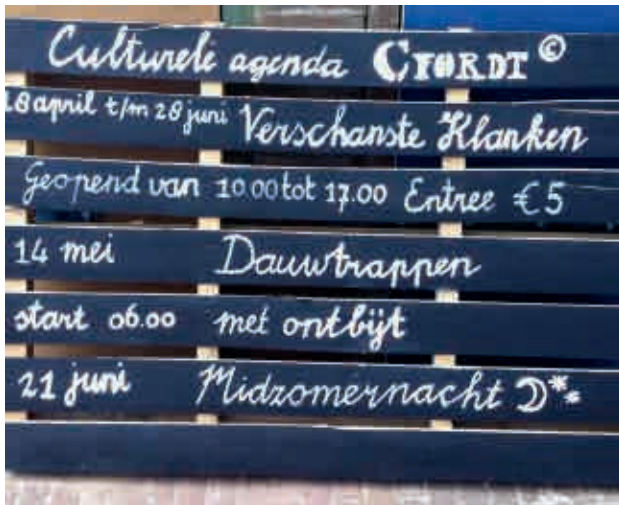 Culturele agenda CFORDT ©
18 april t/m 28 juni Verschanste Klanken
Geopend van 10.00 tot 17.00 Entree €5
14 mei Dauwtrappen
start 06.00 met ontbijt
21 juni Midzomernacht